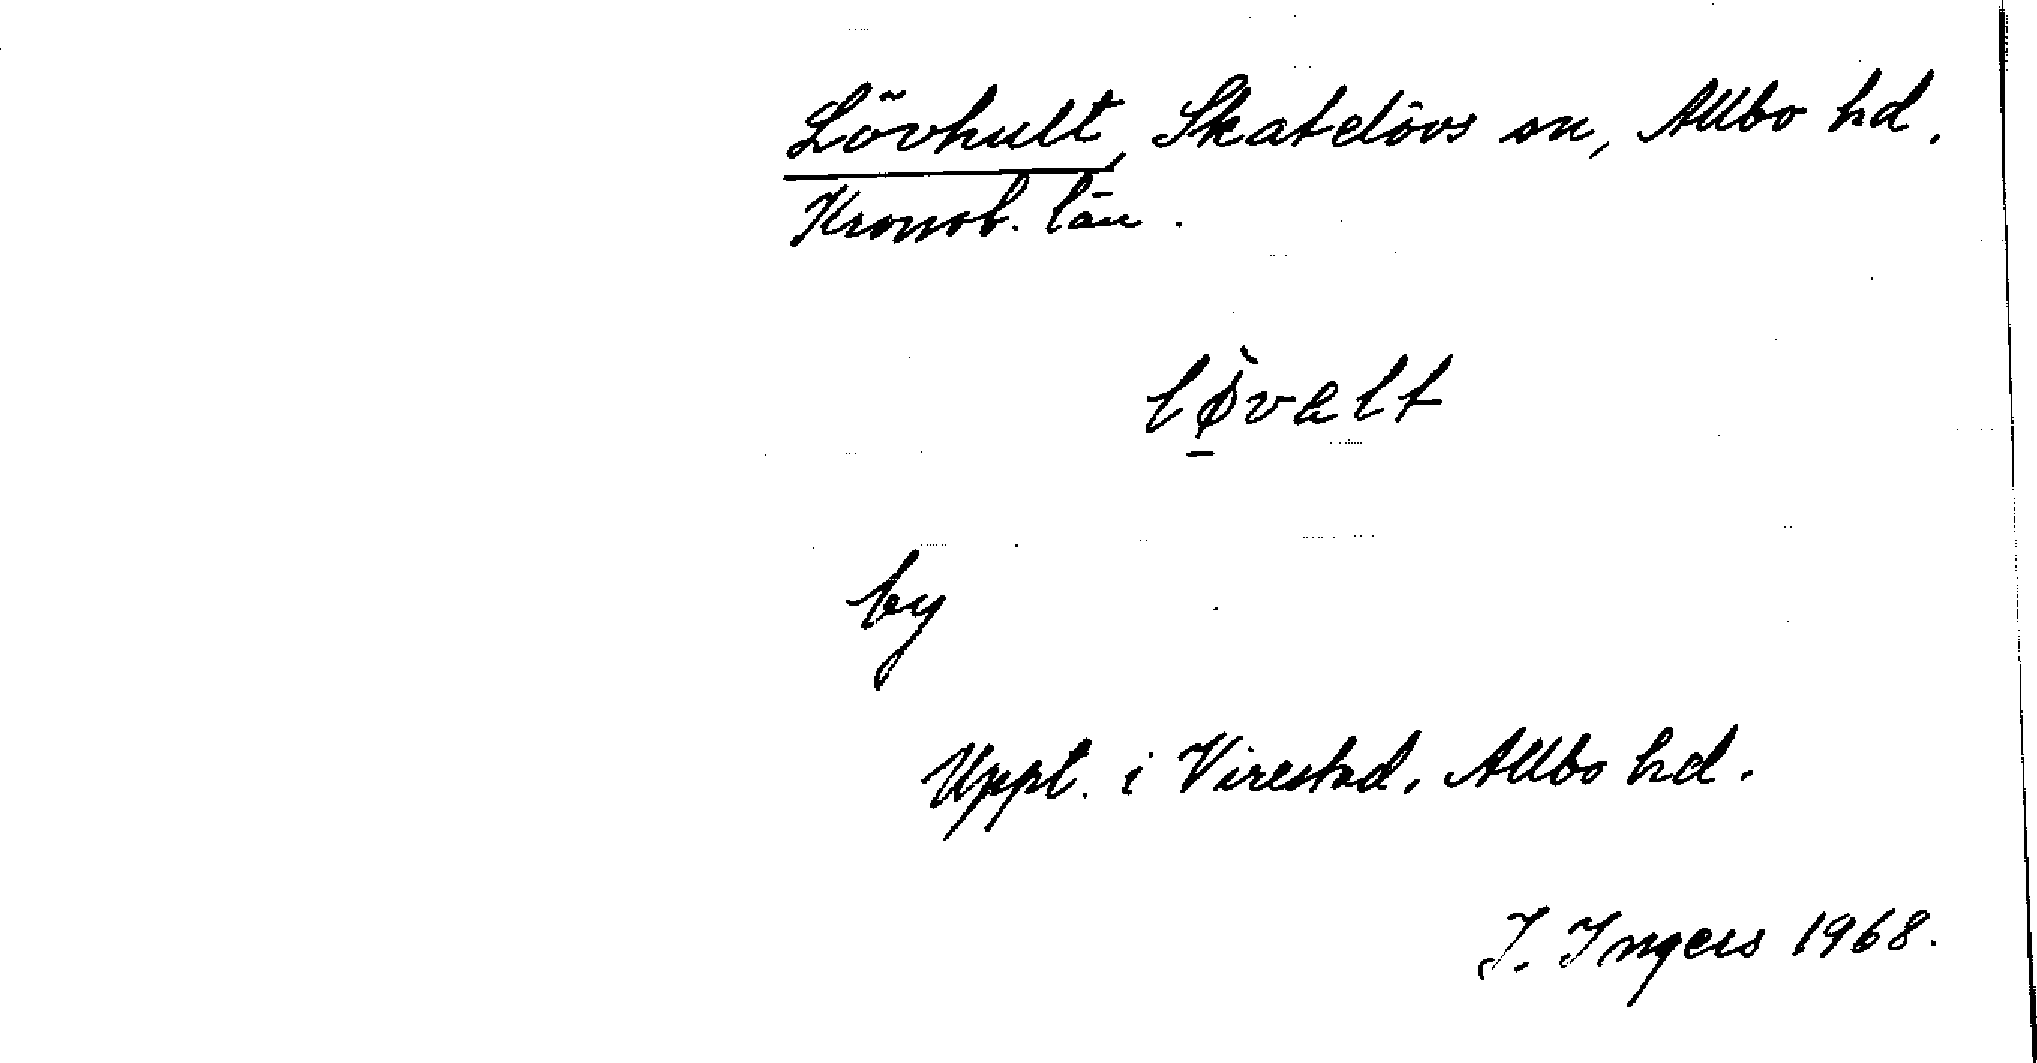 Lövhult, Skatelövs sn, Allbo hd.
Kronob. län.
lø̠̀valt
by
Uppt. i Virestad, Allbo hd.
I. Ingers 1968.